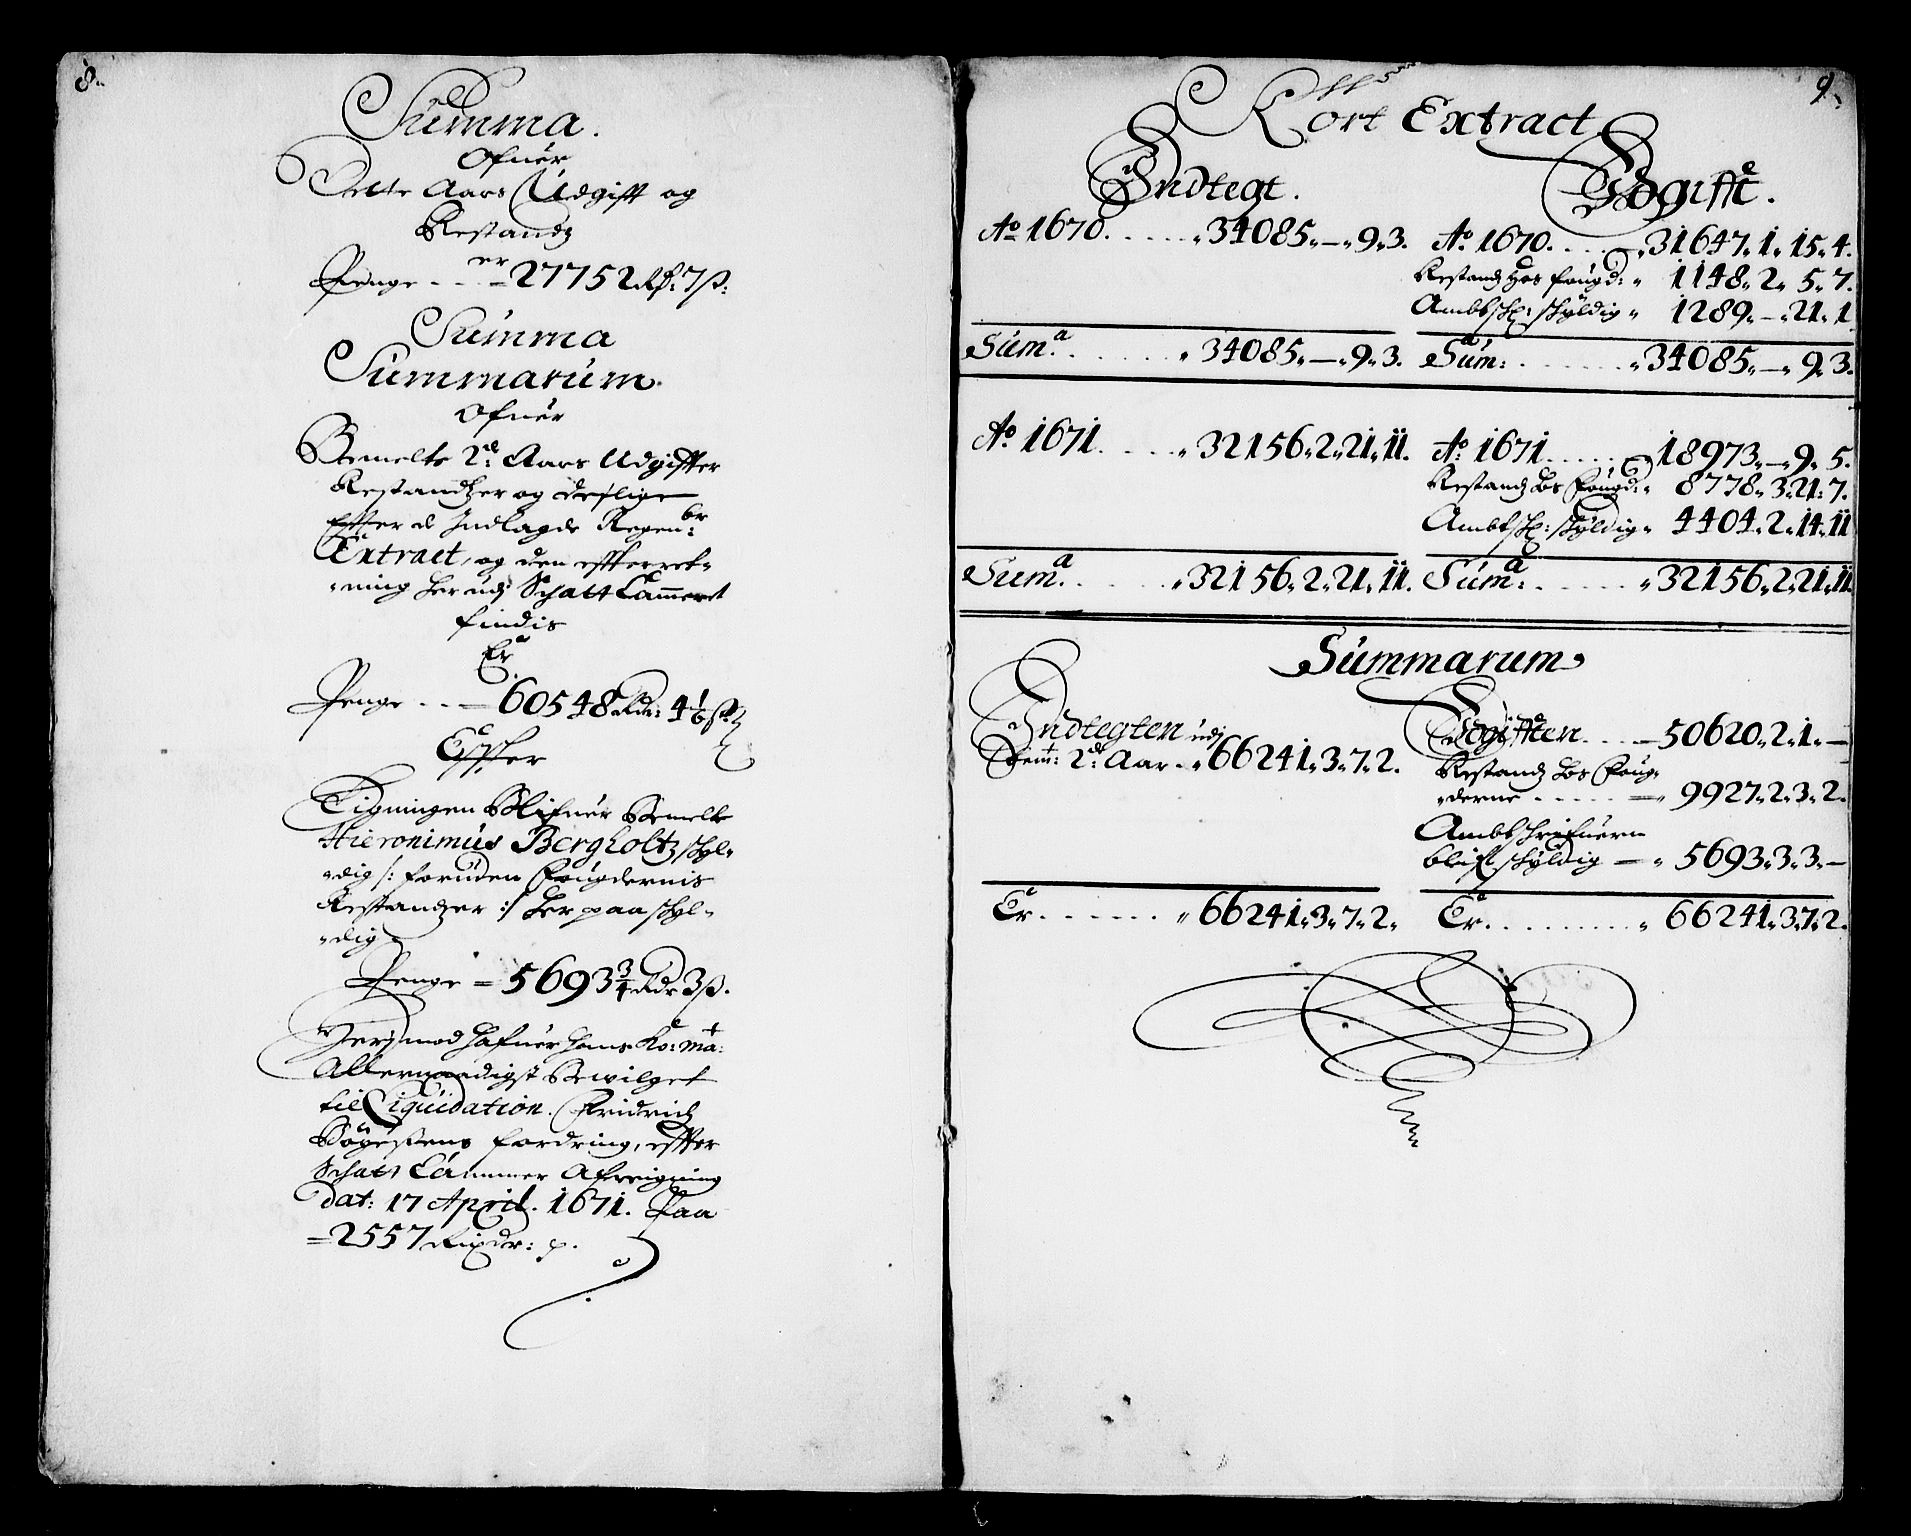 8.
Summa.
Ofuer
Dette Aars Udgift og
Restandz
er
Penge - - - 27752 Rd: 7 ß:
Summa
Summarum.
Ofuer
Bemelte 2de Aars Udgiffter
Restandtzer og deslige
Effter d Indlagde Regenbr:
Extract, og den effterret-
ning her udj Schatt Cammeret
findis
Er
Penge - - - 60548 Rdr: 4 1/6 ß
Effter
Ligningen Blifuer Bemelte
Hieronimus Bergholtz schyl-
dig /: foruden Fougdernis
Restandzer :/ her paa schyl-
dig
Penge - 5693 3/4 Rdr 3 ß.
Herimod hafuer hans Ko: Ma:t
Allernaadigst Bewilget
til Liquidation. Fridrich
Bøgessens fordring, effter
Schatt Cammer Afreigning
dat: 17 April. 1671. Paa
- 2557 Rixdr: p.
9.
Kort Extract
Indtegt. Udgifft.
Ao 1670. . . . . . 34085. — . 9. 3. Ao. 1670. . . . . 31647. 1. 15. 4.
Restandz hos fougd: 1148. 2. 5. 7.
Ambtsch: schyldig 1289. — . 21. 1
Suma. . . . . . . 34085. — . 9. 3. Suma: . . . . . . 34085. — . 9. 3.
Ao. 1671. . . . . 32156. 2. 21. 11. Ao: 1671. . . . . 18973. — . 9. 5.
Restandz hos Fougd: 8778. 3. 21. 7.
Ambtsch: schyldig 4404. 2. 14. 11
Suma. . . . . . 32156. 2. 21. 11. Suma: . . . . . 32156. 2. 21. 11.
Summarum
Indtegten udj Udgifften. . . . 50620. 2. 1. —
Bemt: 2de Aar . 66241. 3. 7. 2. Restandz hos Foug-
derne . . . . . — 9927. 2. 3. 2.
Ambtschrifueren
blifr schyldig — 5693. 3. 3. —
Er. . . . . . . 66241. 3. 7. 2. Er. . . . . . . . . 66241. 3. 7. 2.